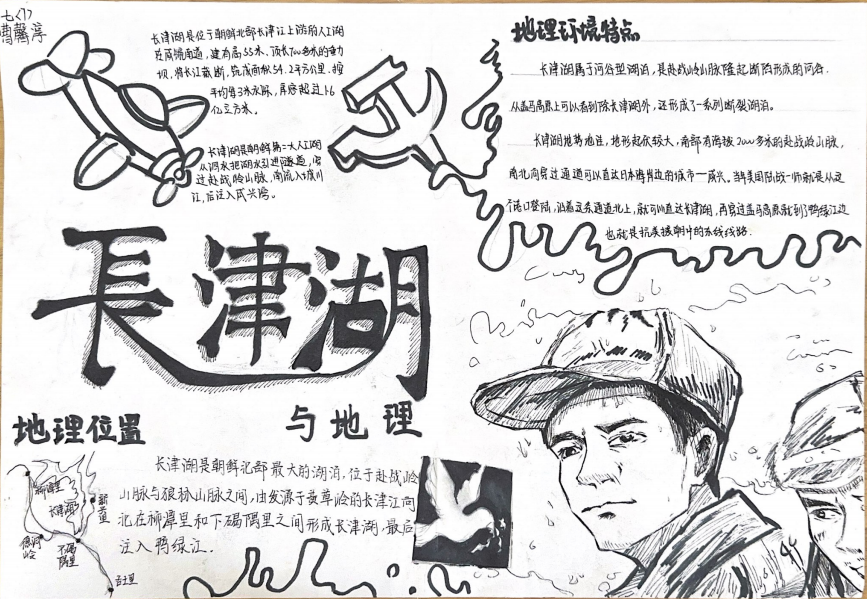 七(7)
曹馨淳
长津湖是位于朝鲜北部长津江上游的人工湖
在咸镜南道,建有高55米,顶长700多米的重力
坝,将长江截断,筑成面积54.2平方公里,按
平均每3米水深,库容超过16
亿立方米。
长津湖是朝鲜第二大人工湖
从湖水把湖水引进隧道,穿
过赴战岭山脉,南流入城川
江,后注入咸兴湾。
地理环境特点
长津湖属于河谷型湖泊,是赴战岭山脉隆起断陷形成的河谷.
从盖马高原上可以看到除长津湖外,还形成了一系列断裂湖泊。
长津湖地势地洼,地形起伏较大,南部有海拔2000多米的赴战岭山脉,
南北向穿过通道可以直达日本海岸边的城市—咸兴。当年美国陆战一师就是从这
个港口登陆,沿着这条通道北上,就可以直达长津湖,再穿过盖马高原就到了鸭绿江边
也就是抗美援朝中的东线战路.
長津湖
与地理
地理位置
长津湖是朝鲜北部最大的湖泊,位于赴战岭
山脉与狼林山脉之间,由发源于黄草岭的长津江向
北在柳潭里和下碣隅里之间形成长津湖,最后
注入鸭绿江.
柳潭里
长津湖
新兴里
德洞岭
下碣隅里
古土里